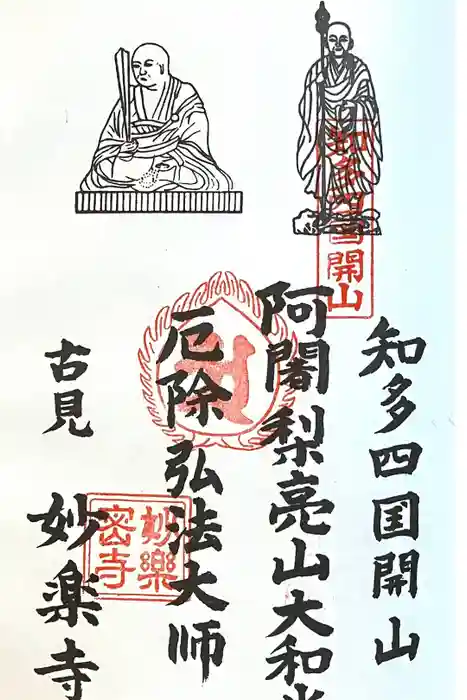 知多四国開山
阿闍梨亮山大和尚
厄除弘法大師
古見
妙楽寺
知多四国開山
妙樂密寺